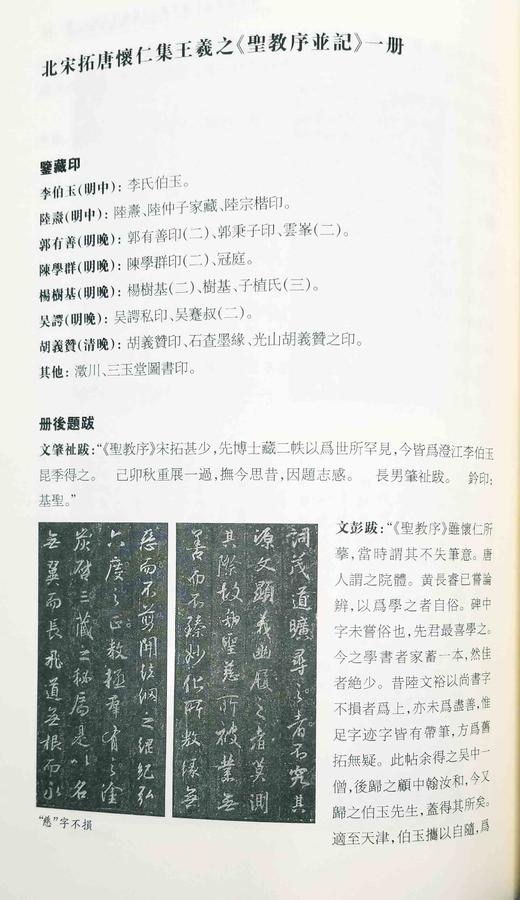 北宋拓唐懷仁集王羲之《聖教序並記》一册
鑒藏印
李伯玉(明中): 李氏伯玉。
陸濤(明中): 陸濤、陸仲子家藏、陸宗楷印。
郭有善(明晚): 郭有善印(二)、郭秉子印、雲峯(二)。
陳學群(明晚): 陳學群印(二)、冠庭。
楊樹基(明晚): 楊樹基(二)、樹基、子植氏(三)。
吴諤(明晚): 吴諤私印、吴蹇叔(二)。
胡義贊(清晚): 胡義贊印、石查墨緣、光山胡義贊之印。
其他: 澂川、三玉堂圖書印。
册後題跋
文肇祉跋: “《聖教序》宋拓甚少，先博士藏二帙以爲世所罕見，今皆爲澄江李伯玉
昆季得之。 己卯秋重展一過，撫今思昔，因題志感。 長男肇祉跋。 鈐印:
基聖。”
詞茂道曠尋之者不究其
源文顯義幽履之者莫測
其際故知聖慈所被業無
善而不臻妙化所敷緣無
惡而不剪開法網之綱紀弘
六度之正教拯群有之塗
炭啓三藏之秘扃是以名
無翼而長飛道無根而永
“慈”字不損
文彭跋: “《聖教序》雖懷仁所
摹，當時謂其不失筆意。唐
人謂之院體。黄長睿已嘗論
辨，以爲學之者自俗。碑中
字未嘗俗也，先君最喜學之。
今之學書者家蓄一本，然佳
者絶少。昔陸文裕以尚書字
不損者爲上，亦未爲盡善，惟
足字迹字皆有帶筆，方爲舊
拓無疑。此帖余得之吴中一
僧，後歸之顧中翰汝和，今又
歸之伯玉先生，蓋得其所矣。
適至天津，伯玉攜以自隨，爲